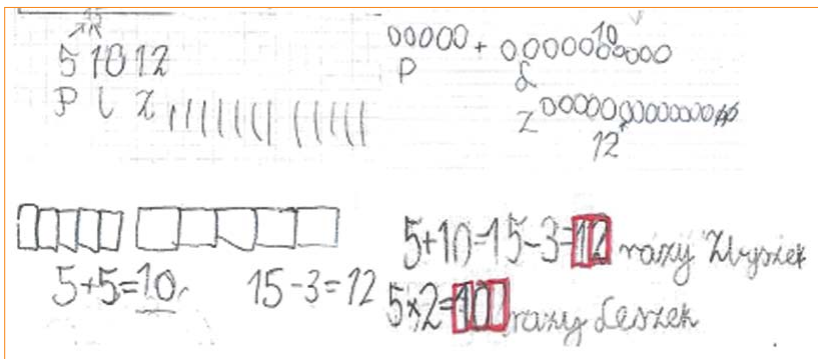 15
5 10 12
P L Z
+ 10
P L
Z
12
5+5=10
15-3=12
5+10=15-3=12 razy Zbyszek
5×2=10 razy Leszek